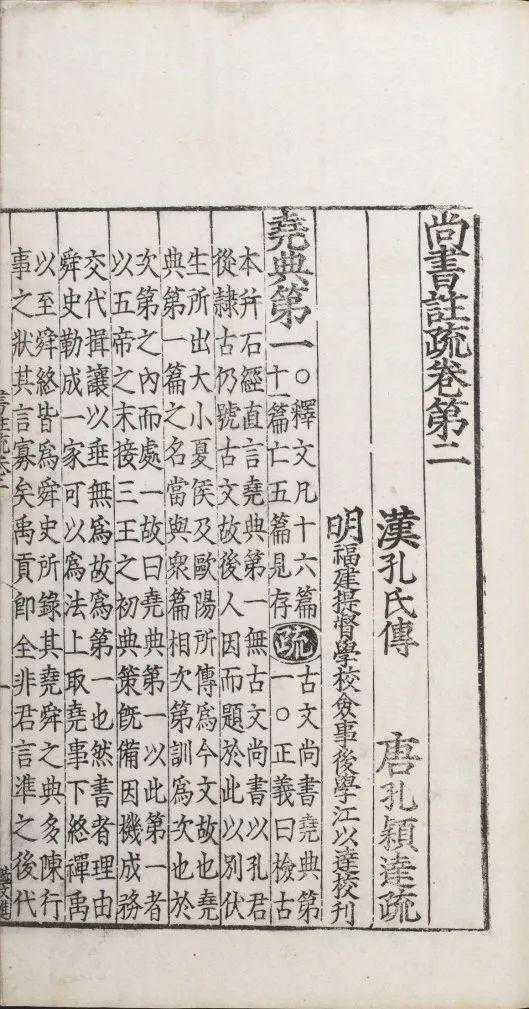 尚書註疏卷第二
漢孔氏傳　唐孔穎達疏
明福建提督學校僉事後學江以達校刊
堯典第一
〇釋文凡十六篇
十一篇亡五篇見存
疏
古文尚書堯典第
一〇正義曰檢古
本并石經直言堯典第一無古文尚書以孔君
從隸古仍號古文故後人因而題於此以別伏
生所出大小夏侯及歐陽所傳爲今文故也堯
典第一篇之名當與衆篇相次第訓爲次也於
次第之內而處一故曰堯典第一以此第一者
以五帝之末接三王之初典策旣備因機成務
交代揖讓以垂無爲故爲第一也然書者理由
舜史勒成一家可以爲法上取堯事下終禪禹
以至舜終皆爲舜史所錄其堯舜之典多陳行
事之狀其言寡矣禹貢即全非君言準之後代